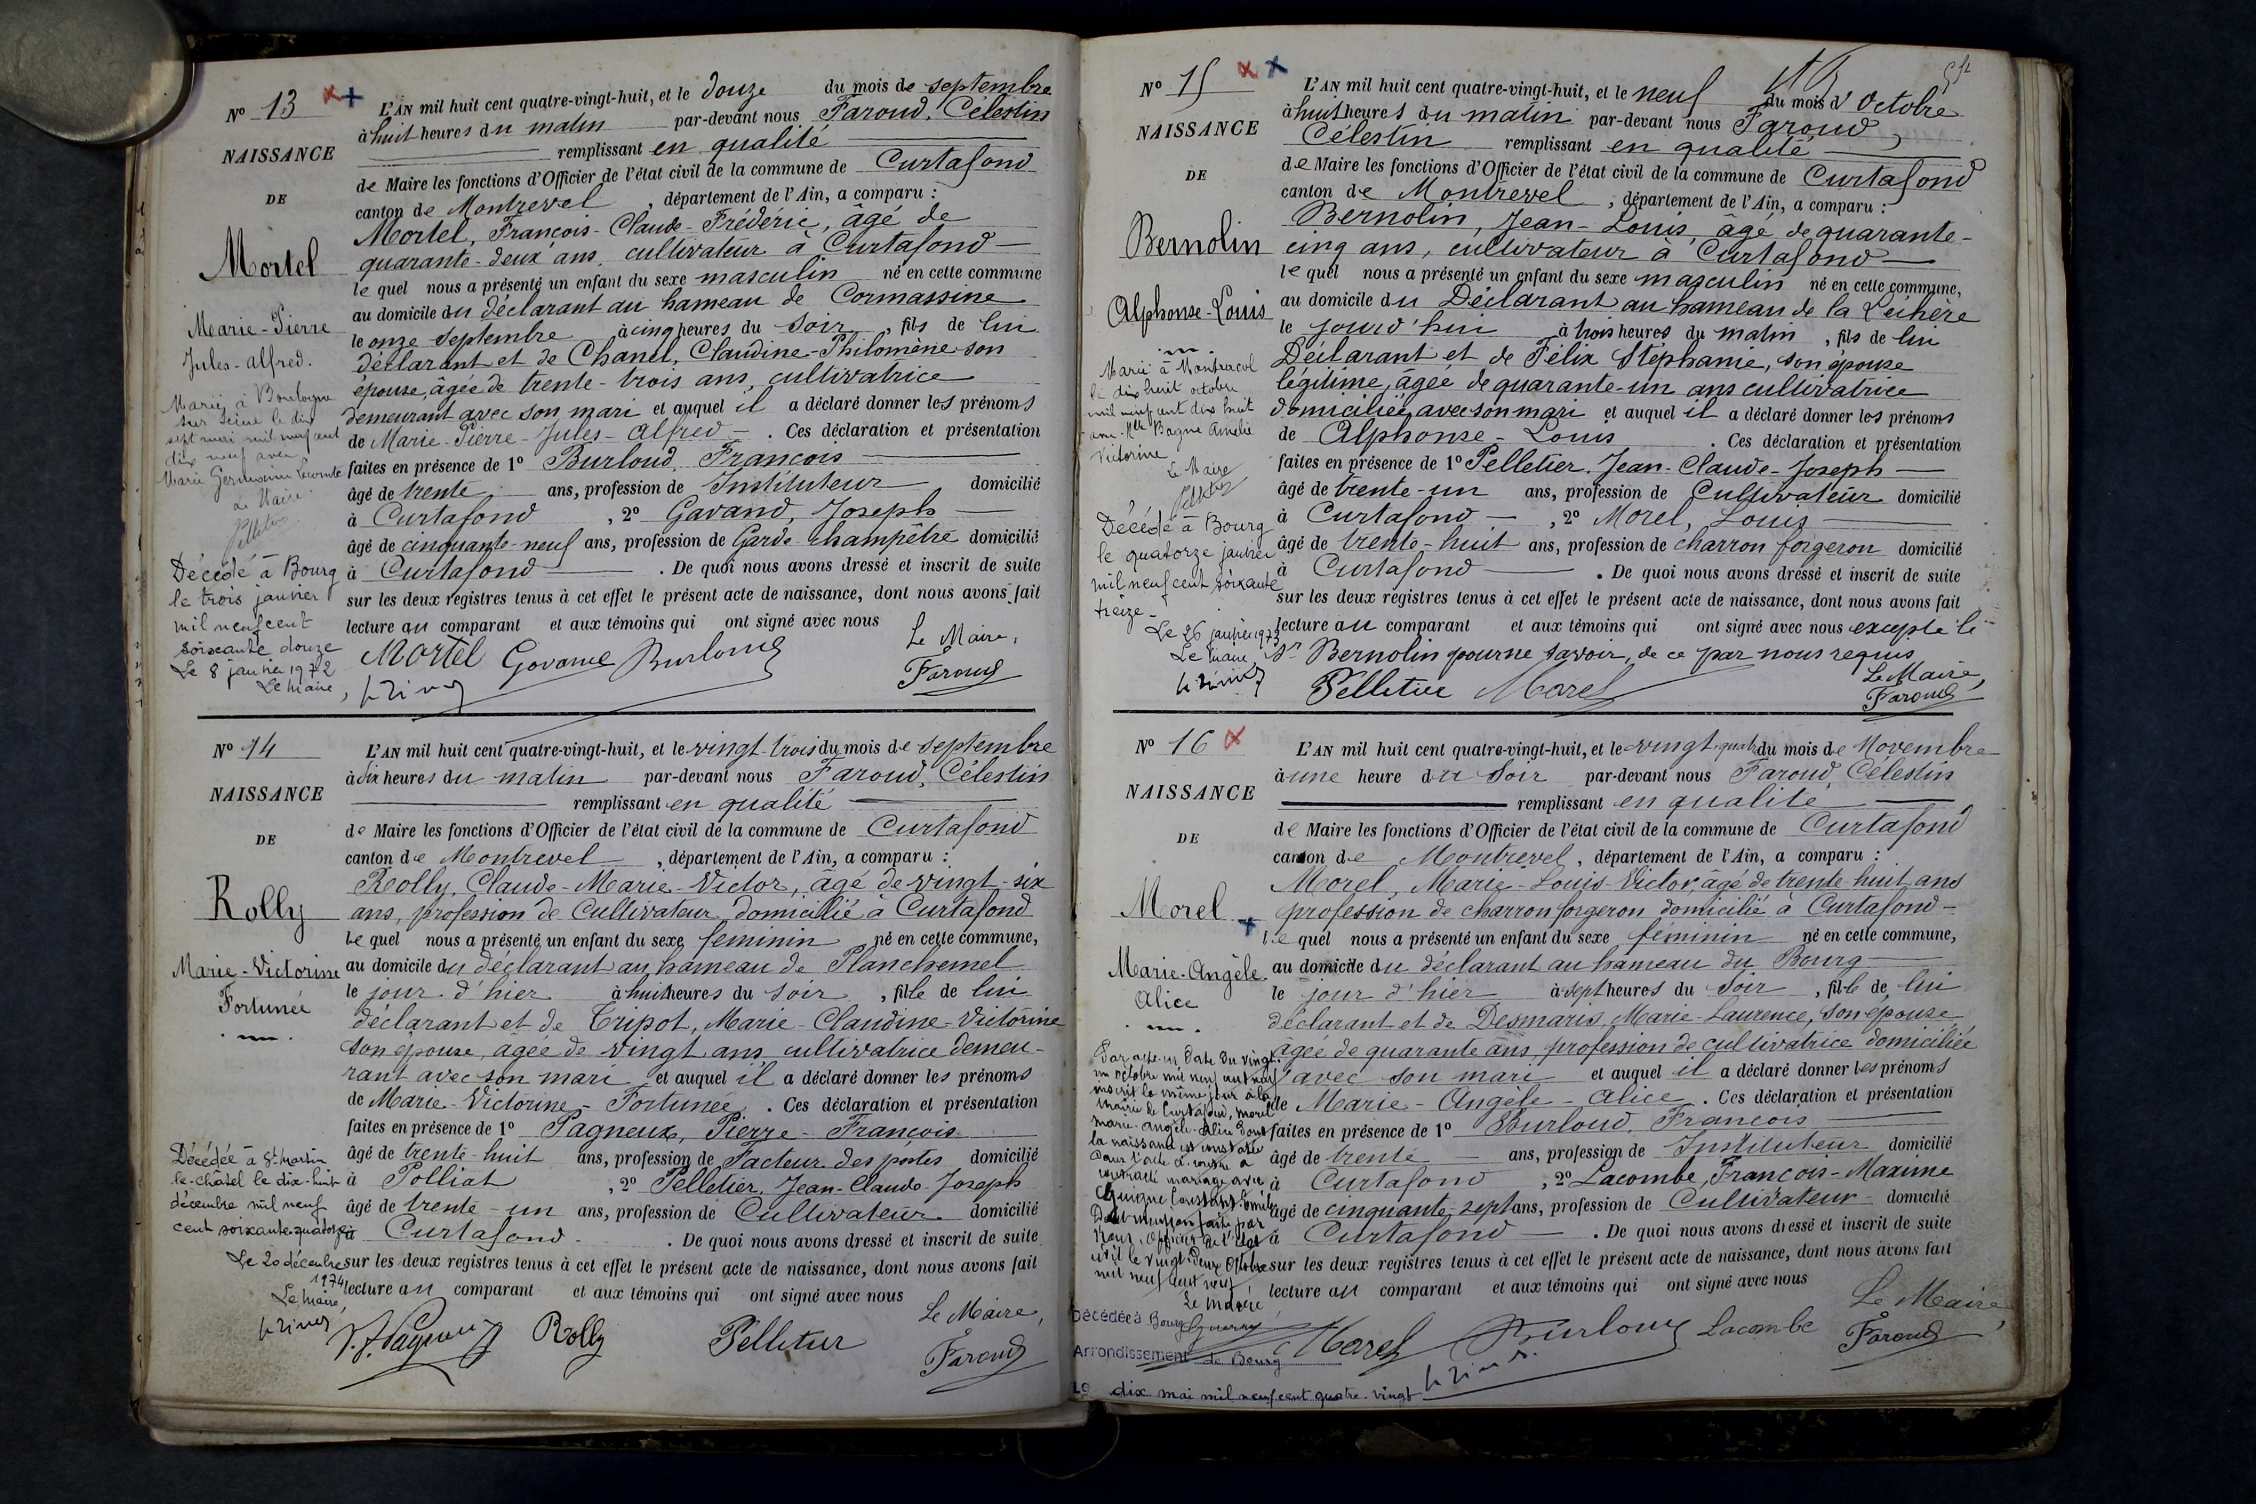 N° 13
NAISSANCE
DE
Mortel
Marie-Pierre
Jules-Alfred.
Marié à Boulogne
sur Seine le dix
sept mai mil neuf cent
dix neuf avec
Marie Germaine
Le Maire
Pelletier
Décédé à Bourg
le trois janvier
mil neuf cent
soixante douze
Le 8 janvier 1972
Le Maire,
L'AN mil huit cent quatre-vingt-huit, et le douze du mois de septembre
à huit heures du matin par-devant nous Faroud, Célestin
remplissant en qualité
de Maire les fonctions d'Officier de l'état civil de la commune de Curtafond
canton de Montrevel, département de l'Ain, a comparu :
Mortel, François-Claude-Frédéric, âgé de
quarante-deux ans, cultivateur à Curtafond
le quel nous a présenté un enfant du sexe masculin né en cette commune
au domicile du déclarant au hameau de Cormassine
le onze septembre à cinq heures du soir, fils de lui
déclarant et de Chanel, Claudine-Philomène son
épouse, âgée de trente-trois ans, cultivatrice
demeurant avec son mari et auquel il a déclaré donner les prénoms
de Marie-Pierre-Jules-Alfred. Ces déclaration et présentation
faites en présence de 1° Burloud, François
âgé de trente ans, profession de Instituteur domicilié
à Curtafond, 2° Gavand, Joseph
âgé de cinquante-neuf ans, profession de Garde-champêtre domicilié
à Curtafond. De quoi nous avons dressé et inscrit de suite
sur les deux registres tenus à cet effet le présent acte de naissance, dont nous avons fait
lecture au comparant et aux témoins qui ont signé avec nous
Le Maire,
Mortel Gavand Burloud
Faroud
N° 14
NAISSANCE
DE
Rolly
Marie-Victorine
Fortunée
Décédée à St Martin
le-châtel le dix-huit
décembre mil neuf
cent soixante quatorze
Le 20 décembre
1974
Le Maire,
L'AN mil huit cent quatre-vingt-huit, et le vingt-trois du mois de septembre
à dix heures du matin par-devant nous Faroud, Célestin
remplissant en qualité
de Maire les fonctions d'Officier de l'état civil de la commune de Curtafond
canton de Montrevel, département de l'Ain, a comparu :
Rolly, Claude-Marie-Victor, âgé de vingt-six
ans, profession de Cultivateur domicilié à Curtafond
le quel nous a présenté un enfant du sexe féminin né en cette commune,
au domicile du déclarant au hameau de Planchemel
le jour d'hier à huit heures du soir, fille de lui
déclarant et de Tripot, Marie-Claudine-Victorine
son épouse, âgée de vingt ans, cultivatrice demeu-
rant avec son mari et auquel il a déclaré donner les prénoms
de Marie-Victorine-Fortunée. Ces déclaration et présentation
faites en présence de 1° Pagneux, Pierre-François
âgé de trente-huit ans, profession de Facteur des postes domicilié
à Polliat, 2° Pelletier, Jean-Claude-Joseph
âgé de trente-un ans, profession de Cultivateur domicilié
à Curtafond. De quoi nous avons dressé et inscrit de suite
sur les deux registres tenus à cet effet le présent acte de naissance, dont nous avons fait
lecture au comparant et aux témoins qui ont signé avec nous
Le Maire,
P. F. Pagneux Rolly Pelletier
Faroud
N° 15
NAISSANCE
DE
Bernolin
Alphonse-Louis
Marié à Montracol
le dix huit octobre
mil neuf cent dix huit
avec Mlle Bagne Amélie
Victorine
Le Maire
Pelletier
Décédé à Bourg
le quatorze janvier
mil neuf cent soixante
treize
Le 26 janvier 1973
Le Maire
L'AN mil huit cent quatre-vingt-huit, et le neuf du mois d'Octobre
à huit heures du matin par-devant nous Faroud,
Célestin remplissant en qualité
de Maire les fonctions d'Officier de l'état civil de la commune de Curtafond
canton de Montrevel, département de l'Ain, a comparu :
Bernolin, Jean-Louis, âgé de quarante-
cinq ans, cultivateur à Curtafond
le quel nous a présenté un enfant du sexe masculin né en cette commune,
au domicile du Déclarant au hameau de la Léchère
le jourd'hui à trois heures du matin, fils de lui
Déclarant et de Félix Stéphanie, son épouse
légitime, âgée de quarante-un ans cultivatrice
domiciliée avec son mari et auquel il a déclaré donner les prénoms
de Alphonse-Louis. Ces déclaration et présentation
faites en présence de 1° Pelletier, Jean-Claude-Joseph
âgé de trente-un ans, profession de Cultivateur domicilié
à Curtafond, 2° Morel, Louis
âgé de trente-huit ans, profession de charron forgeron domicilié
à Curtafond. De quoi nous avons dressé et inscrit de suite
sur les deux registres tenus à cet effet le présent acte de naissance, dont nous avons fait
lecture au comparant et aux témoins qui ont signé avec nous excepté le
Sr Bernolin pour ne savoir, de ce par nous requis
Le Maire,
Pelletier Morel
Faroud
N° 16
NAISSANCE
DE
Morel
Marie-Angèle
Alice
Par acte en date du vingt
un octobre mil neuf cent neuf
inscrit le même jour à la
mairie de Curtafond, Morel
Marie-Angèle-Alice dont
la naissance est constatée
dans l'acte ci-contre a
contracté mariage avec
Constant Émile
Dont mention faite par
Nous, Officier de l'état
civil le vingt deux Octobre
mil neuf cent neuf
Le Maire
Décédée à Bourg
Arrondissement de Bourg
Le dix mai mil neuf cent quatre-vingt
L'AN mil huit cent quatre-vingt-huit, et le vingt-quatre du mois de Novembre
à une heure du soir par-devant nous Faroud, Célestin
remplissant en qualité
de Maire les fonctions d'Officier de l'état civil de la commune de Curtafond
canton de Montrevel, département de l'Ain, a comparu :
Morel, Marie-Louis-Victor, âgé de trente-huit ans
profession de charron forgeron domicilié à Curtafond
le quel nous a présenté un enfant du sexe féminin né en cette commune,
au domicile du déclarant au hameau du Bourg
le jour d'hier à sept heures du soir, fille de lui
déclarant et de Desmaris Marie-Laurence, son épouse
âgée de quarante ans, profession de cultivatrice domiciliée
avec son mari et auquel il a déclaré donner les prénoms
de Marie-Angèle-Alice. Ces déclaration et présentation
faites en présence de 1° Burloud, François
âgé de trente ans, profession de Instituteur domicilié
à Curtafond, 2° Lacombe, François-Maxime
âgé de cinquante-sept ans, profession de Cultivateur domicilié
à Curtafond. De quoi nous avons dressé et inscrit de suite
sur les deux registres tenus à cet effet le présent acte de naissance, dont nous avons fait
lecture au comparant et aux témoins qui ont signé avec nous
Le Maire,
Morel Burloud Lacombe
Faroud